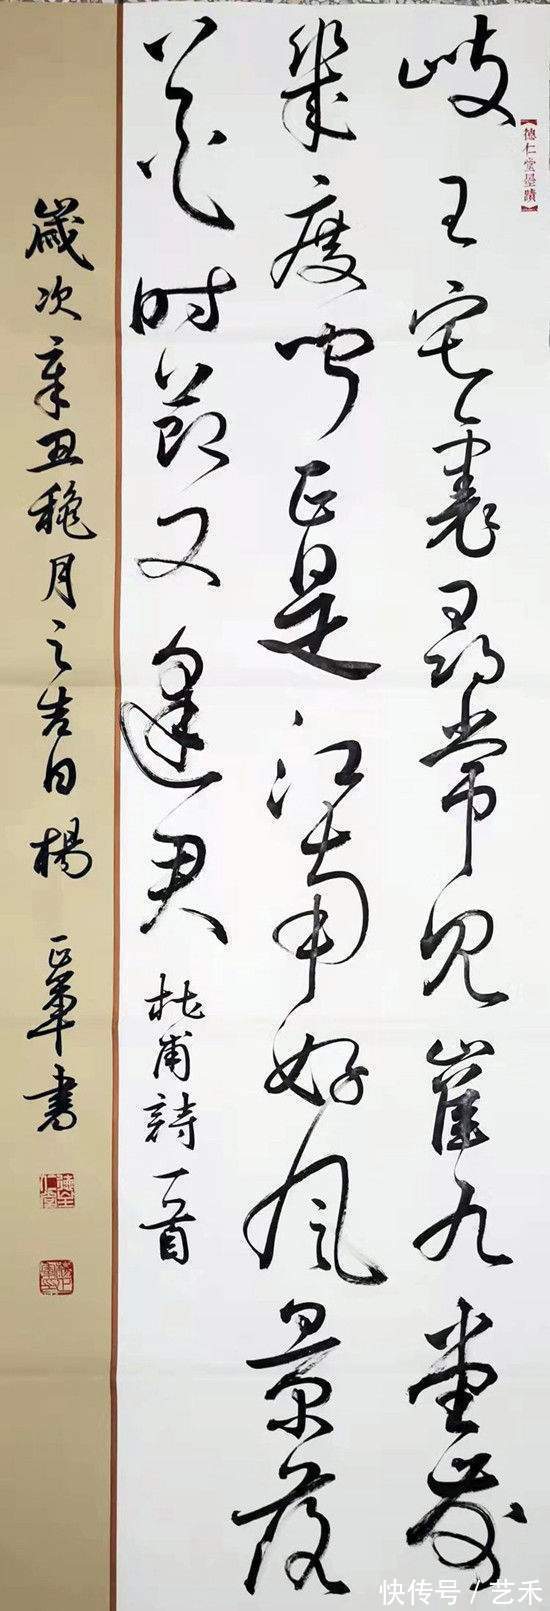 【德仁堂墨蹟】
岐王宅裏尋常見崔九堂前
幾度聞正是江南好風景落
花时節又逢君
杜甫詩一首
歲次辛丑穐月之吉日楊書
快传号 / 艺禾